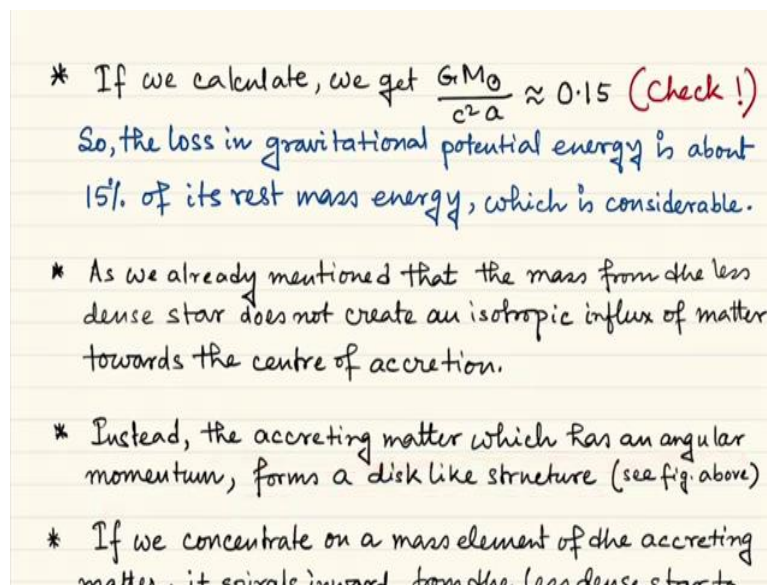 * If we calculate, we get GM⊙/c²a ≈ 0.15 (Check!)
So, the loss in gravitational potential energy is about
15%. of its rest mass energy, which is considerable.
* As we already mentioned that the mass from the less
dense star does not create an isotropic influx of matter
towards the centre of accretion.
* Instead, the accreting matter which has an angular
momentum, forms a disk like structure (see fig. above)
* If we concentrate on a mass element of the accreting
matter, it spirals inward from the less dense star to